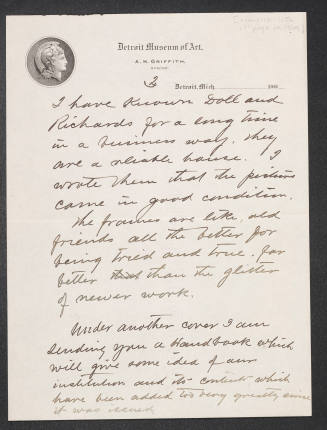 Detroit Museum of Art.
A. H. GRIFFITH,
2
Detroit, Mich.
I have known Doll and
Richards for a long time
in a business way, they
are a reliable house. I
wrote them that the pictures
came in good condition.
The frames are like old
friends all the better for
being tried and true, far
better than the glitter
of newer work.
Under another cover I am
sending you a Handbook which
will give some idea of our
institution and its contents which
have been added to very greatly since
it was issued